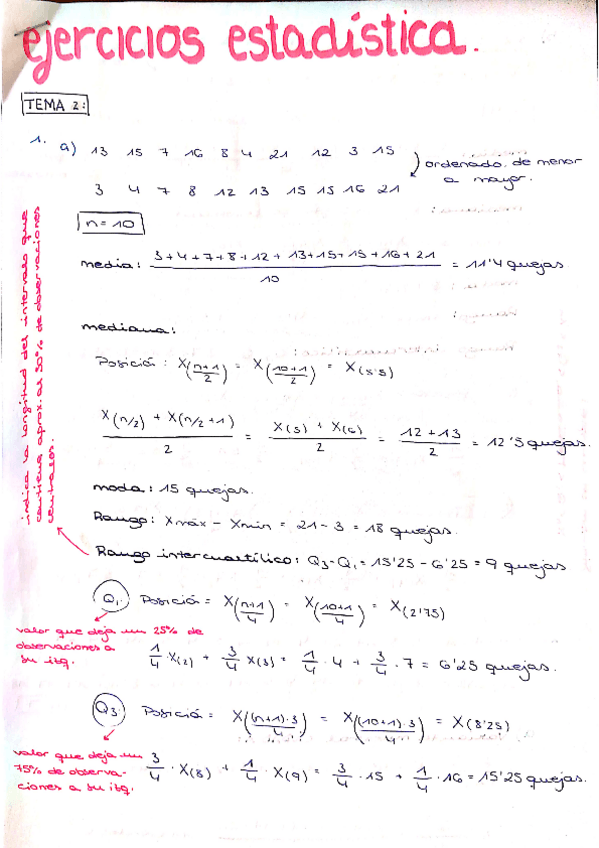 ejercicios estadística.
TEMA 2:
1. a) 13 15 7 16 8 4 21 12 3 15
ordenado de menor a mayor.
3 4 7 8 12 13 15 15 16 21
n=10
media: (3+4+7+8+12+13+15+15+16+21)/10 = 11'4 quejas
mediana:
Posición: X((n+1)/2) = X((10+1)/2) = X(5'5)
(X(n/2) + X(n/2+1))/2 = (X(5) + X(6))/2 = (12+13)/2 = 12'5 quejas.
moda: 15 quejas.
Rango: Xmáx - Xmin = 21-3 = 18 quejas.
Rango intercuartílico: Q3-Q1 = 15'25 - 6'25 = 9 quejas
indica la longitud del intervalo que
contiene aprox. al 50% de observaciones
centrales.
Q1 Posición = X((n+1)/4) = X((10+1)/4) = X(2'75)
valor que deja un 25% de
observaciones a
su izq.
1/4 · X(2) + 3/4 X(3) = 1/4 · 4 + 3/4 · 7 = 6'25 quejas.
Q3 Posición = X((n+1)·3/4) = X((10+1)·3/4) = X(8'25)
valor que deja un
75% de observa-
ciones a su izq.
3/4 · X(8) + 1/4 · X(9) = 3/4 · 15 + 1/4 · 16 = 15'25 quejas.